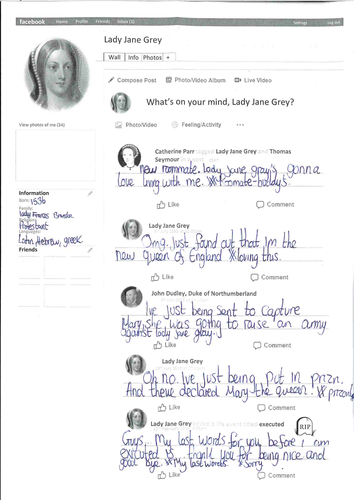 facebook Home Profile Friends Inbox Settings Log out
Lady Jane Grey
Wall Info Photos +
Compose Post Photo/Video Album Live Video
What's on your mind, Lady Jane Grey?
Photo/Video Feeling/Activity
View photos of me (34)
Catherine Parr tagged Lady Jane Grey and Thomas
Seymour
new roommate. lady jane gray's gonna
love living with me. #Roomate-buddys.
Like Comment
Information
Born: 1536
Family:
Lady Frances Brandon
Protestant
Languages:
Latin, Hebrew, greek
Friends
Lady Jane Grey
Omg. Just found out that Im the
new queen of England #loving this.
Like Comment
John Dudley, Duke of Northumberland
I've Just being sent to capture
Mary, she was going to raise an army
against lady jane gray.
Like Comment
Lady Jane Grey
Oh no. Ive Just being put in prizn.
And theve declared Mary the queen.
Like Comment
Lady Jane Grey executed
RIP
Guys, My last words for you before I am
executed is, thank you for being nice and
good bye. #My last words. #Sorry
Like Comment